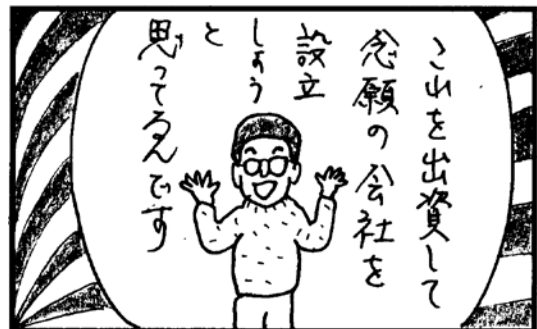 これを出資して
念願の会社を
設立
しよう
と
思ってるんです